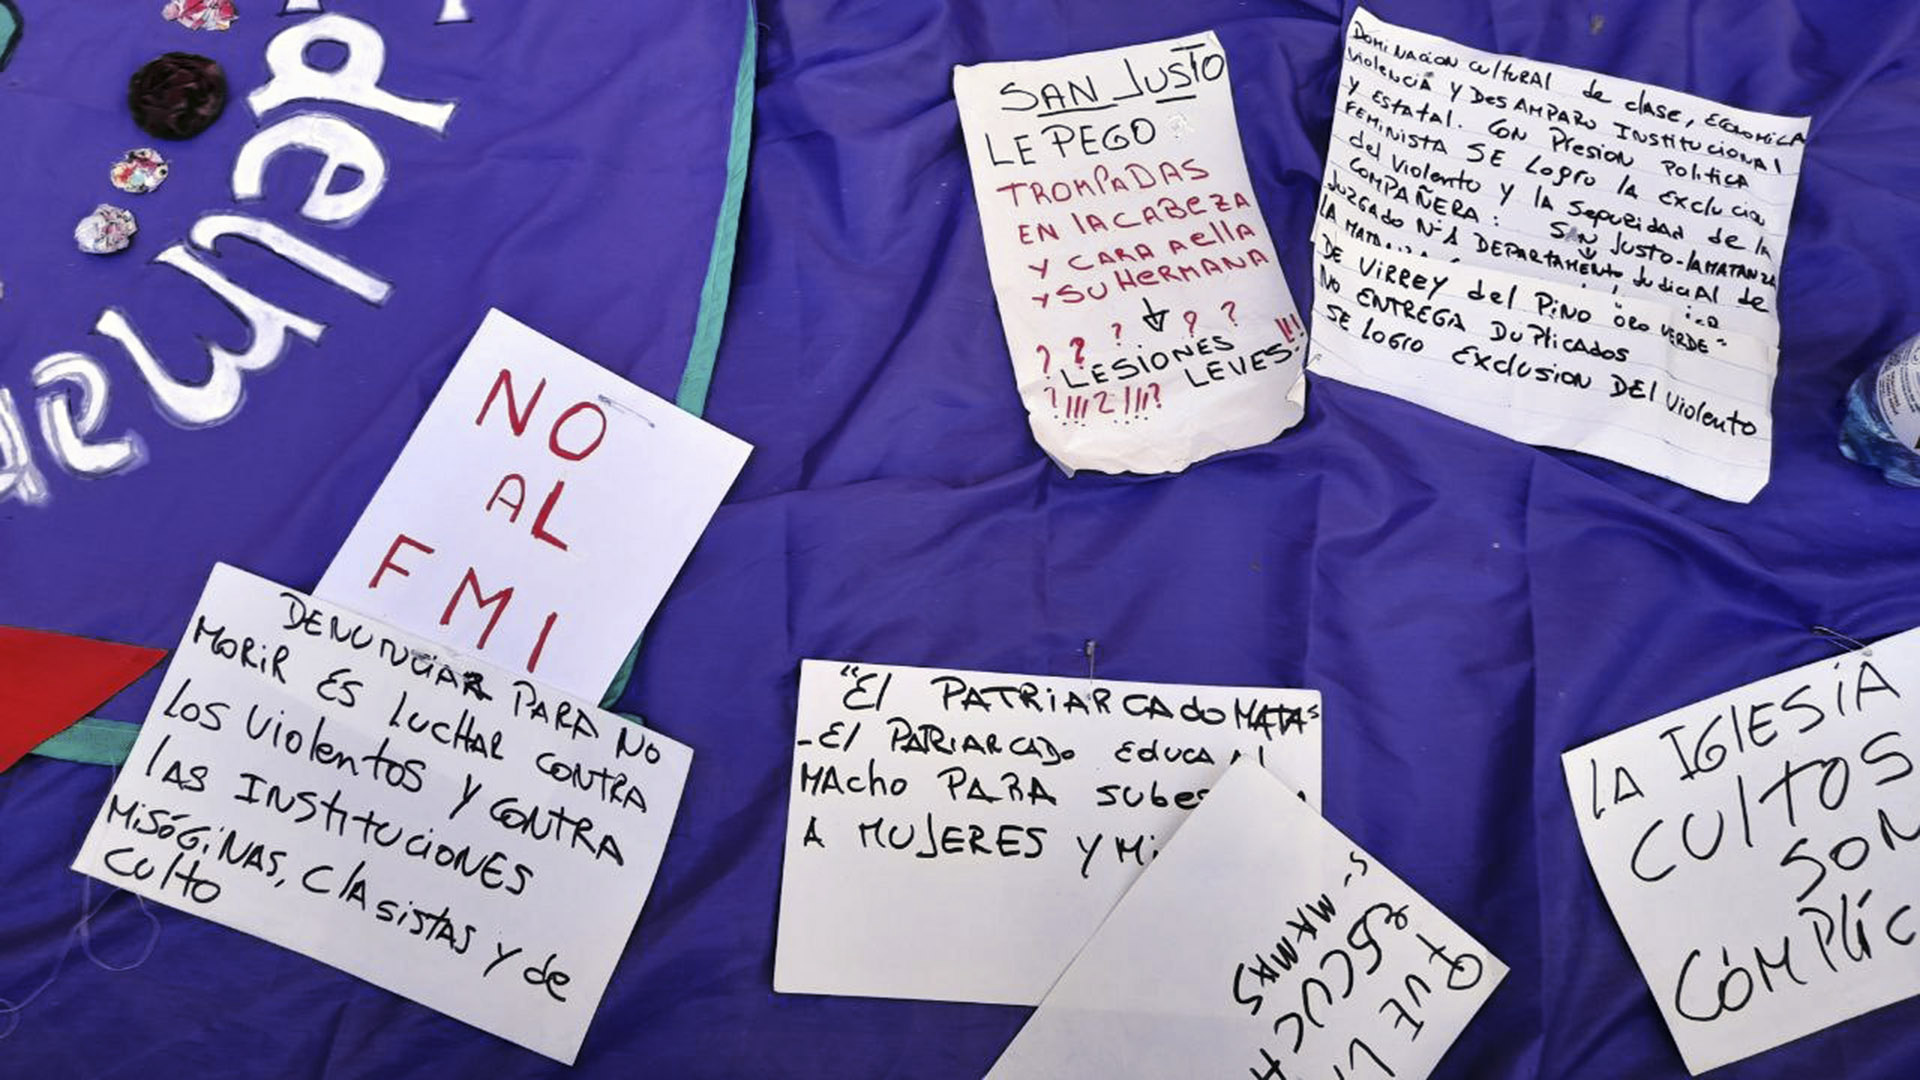 SAN JUSTO
LE PEGO
TROMPADAS
EN LA CABEZA
Y CARA A ELLA
Y SU HERMANA
? ? ? ? ?
LESIONES
LEVES!!
DOMINACION CULTURAL de clase, ECONOMICA
Violencia y DESAMPARO INSTITUCIONAL
y Estatal. CON PRESION POLITICA
FEMINISTA SE LOGRO la Exclucion
del Violento y la Seguridad de la
COMPAÑERA: SAN JUSTO-LA MATANZA
JUZGADO Nº1 DEPARTAMENTO Judicial de
LA MATA
DE VIRREY del PINO "ORO VERDE"
NO ENTREGA DUPLICADOS
SE LOGRO EXCLUSION DEL Violento
NO
AL
FMI
DENUNCIAR PARA NO
MORIR ES LUCHAR CONTRA
LOS Violentos y CONTRA
LAS INSTITUCIONES
MISÓGINAS, CLASISTAS y de
Culto
"El PATRIARCADO MATA"
-El PATRIARCADO EDUCA Al
MACHO PARA
A MUJERES Y
QUE
ESCUCH
LA IGLESIA
CULTOS
SON
CÓMPLIC